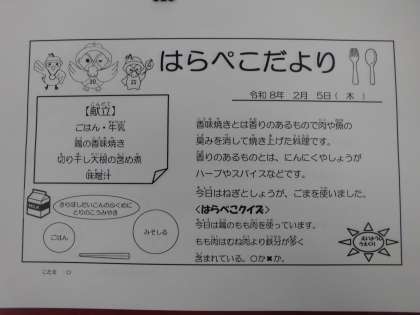 はらぺこだより
令和8年 2月 5日( 木 )
【献立】
ごはん・牛乳
鶏の香味焼き
切り干し大根の含め煮
味噌汁
きりぼしだいこんのふくめに
とりのこうみやき
ごはん
みそしる
香味焼きとは香りのあるもので肉や魚の
臭みを消して焼き上げた料理です。
香りのあるものとは、にんにくやしょうが
ハーブやスパイスなどです。
今日はねぎとしょうが、ごまを使いました。
<はらぺこクイズ>
今日は鶏のもも肉を使っています。
もも肉はむね肉より鉄分が多く
含まれている。○か✖か。
こたえ ○